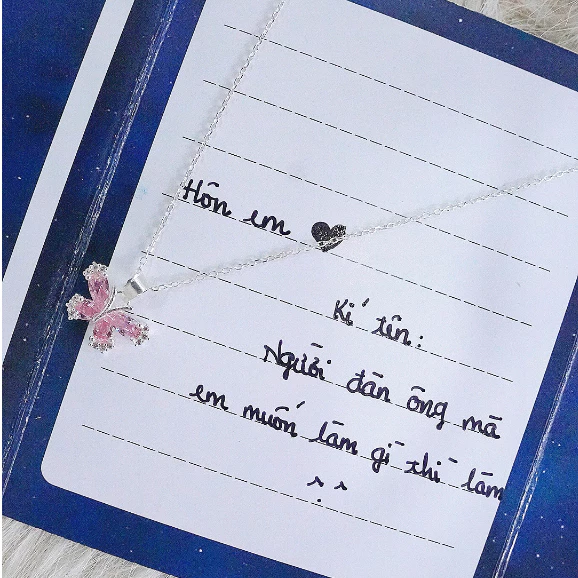 Hôn em 🖤
Kí tên:
Người đàn ông mà
em muốn làm gì thì làm
^.^